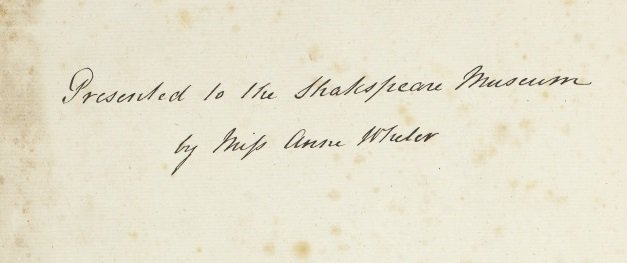 Presented to the Shakspeare Museum
by Miss Anne Wheler